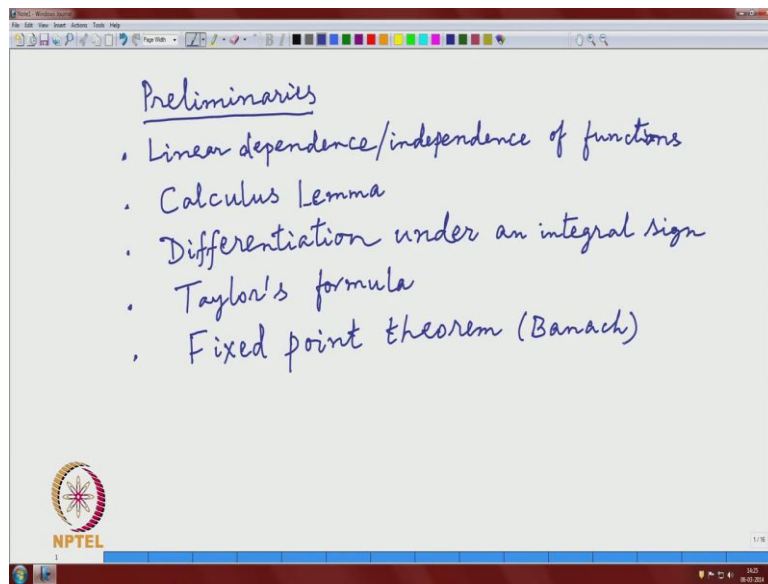 Note1 - Windows Journal
File Edit View Insert Actions Tools Help
Page Width
Preliminaries
. Linear dependence/independence of functions
. Calculus Lemma
. Differentiation under an integral sign
. Taylor's formula
. Fixed point theorem (Banach)
NPTEL
1
1/16
14:25